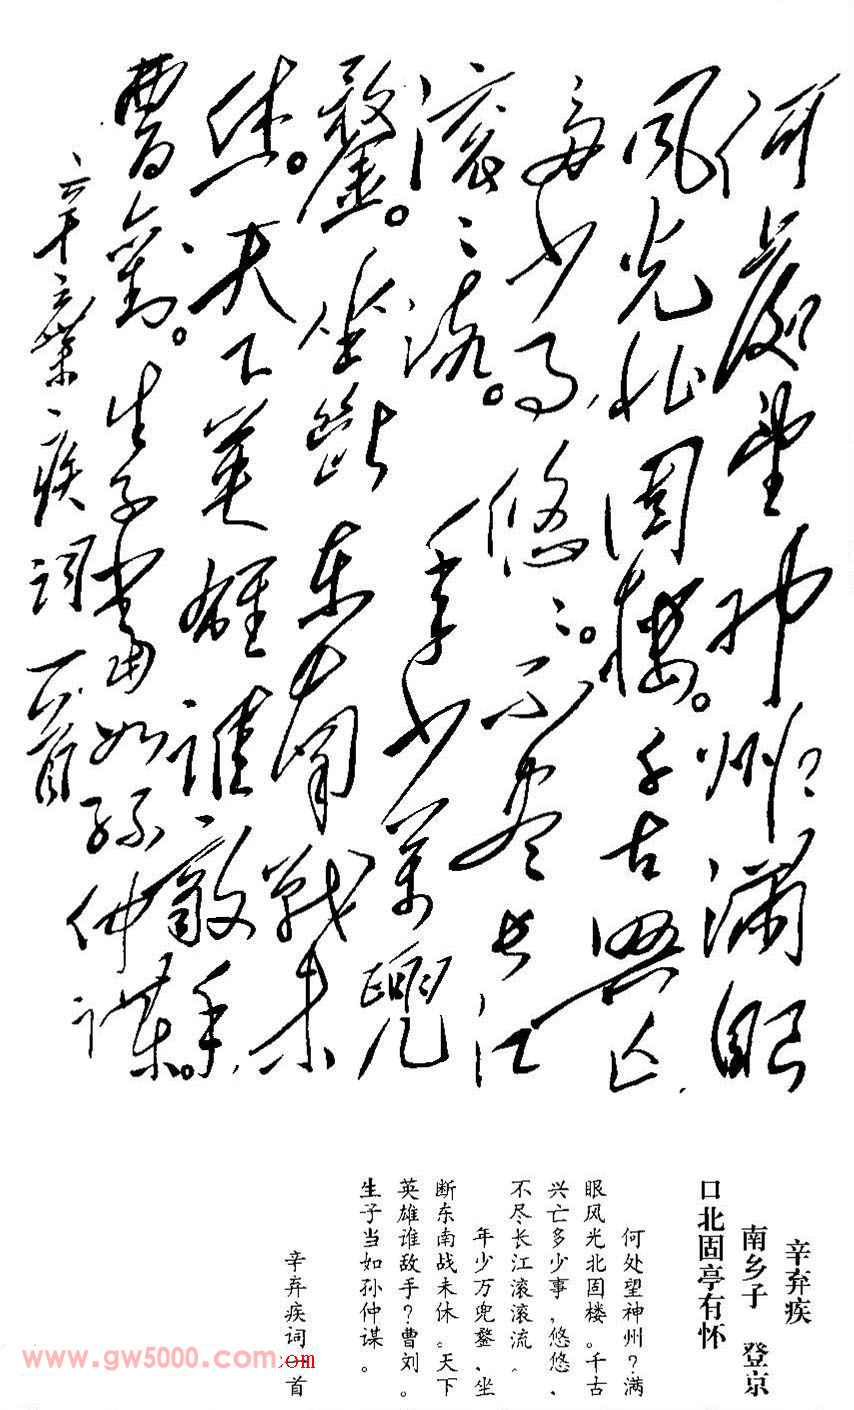 何處望神州？滿眼
風光北固樓。千古興亡
多少事，悠〻。不盡長江
滾〻流。
年少萬兜
鍪。坐斷東南戰未
休。天下英雄誰敵手，
曹劉。生子當如孫仲謀。
辛棄疾詞一首
辛弃疾
南乡子 登京
口北固亭有怀
何处望神州？满
眼风光北固楼。千古
兴亡多少事，悠悠，
不尽长江滚滚流。
年少万兜鍪，坐
断东南战未休。天下
英雄谁敌手？曹刘。
生子当如孙仲谋。
辛弃疾词一首
www.gw5000.com